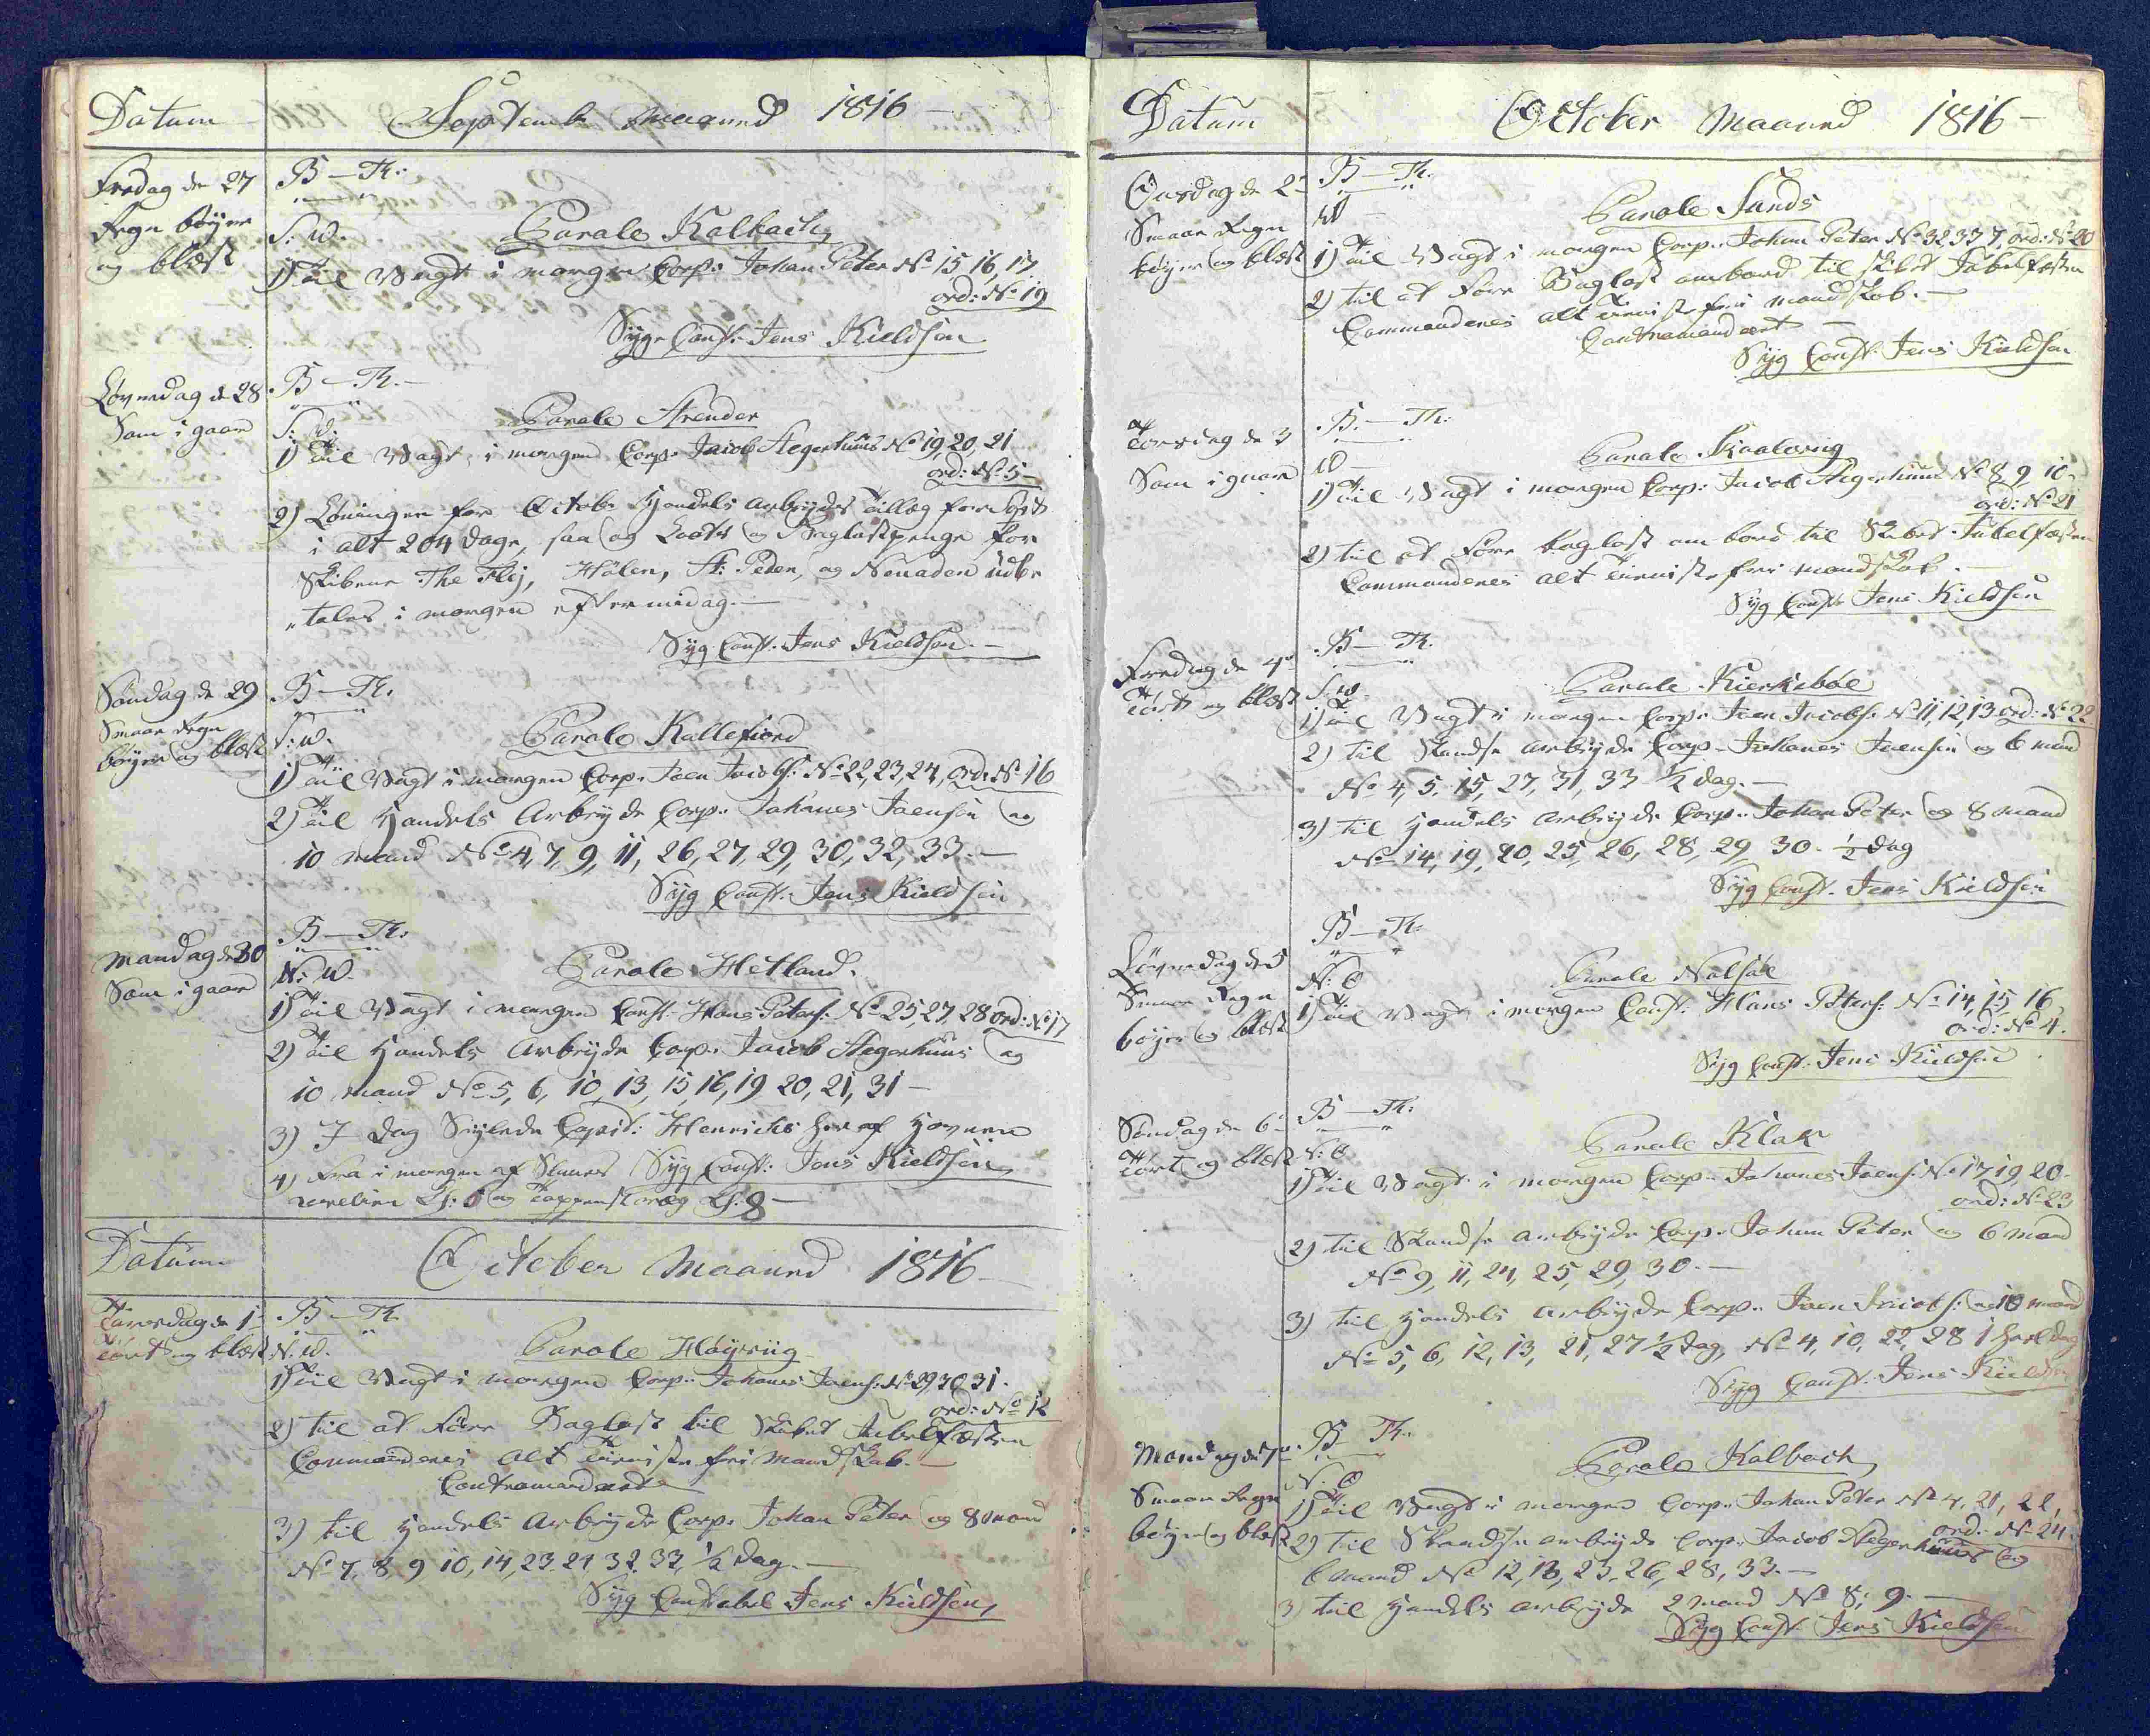 Datum
Septemb Maaned 1816 —
Fredag de 27
Regn bøyer
og blæst
B — Th:
S: W.
Parole Kalbach
1) Til Vagt i morgen Corp: Johan Peter No 15, 16, 17.
ord: No 19
Syge Const: Jens Kieldsen
Løverdag d 28
Som i gaar
B — Th. —
S: W:
Parole Arender
1) Til Vagt i morgen Corp: Jacob Aegerhuus No 19, 20, 21
ord: No 5 —
2) Løningen for Octob: Handels Arbeydes Tillæg for Sept
i alt 204 Dage, saa og Baglastpenge for
Skibene The Flij, Hølen, St: Peder, og Nenaden udbe
"tales i morgen eftermidag. —
Syg Const: Jens Kieldsen. —
Søndag de 29
Smaae Regn
bøyer og blæst
B — Th.
S: W.
Parole Kallefiord
1) Til Vagt i morgen Corp: Joen Jacobs: No 22, 23, 24, ord: No 16
2) Til Handels Arbeyde Corp: Johanes Joensen og
10 mand No 4, 7, 9, 11, 26, 27, 29, 30, 32, 33. —
Syg Const: Jens Kieldsen
Mandag de 30
Som i gaar
B — Th:
N: W.
Parole Hetland.
1) Til Vagt i morgen Const: Hans Peters: No 25, 27, 28 ord: No 17
2) Til Handels Arbeyde Corp: Jacob Aegerhuus og
10 mand No 5, 6, 10, 13, 15 16, 19 20, 21, 31 —
3) I Dag Seylede Capit: Henrichs her af Havnen
4) Fra i morgen af Slaaes Syg Const: Jens Kieldsen
revelien Kl: 6 og Tappenstræg Kl: 8 —
Datum
October Maaned 1816 —
Tiersdag de 1
Tørt og blæst
B — Th.
N. W.
Parole Høyviig
1) Til Vagt i morgen Corp: Johanes Joens: No 29 30 31.
ord: No 12
2) Til at Føre Baglast til Skibet Jubelfæsten
Commanderes alt Tieniste frie Mandskab. —
Contramanderet
3) Til Handels Arbeyde Corp: Johan Peter og 8 mand
No 7, 8, 9 10, 14, 23 24 32 33, ½ Dag. —
Syg Constabel Jens Kieldsen
Datum
October Maaned 1816 —
Onsdag de 2
Smaae Regn
bøyer og blæst
B — Th.
W —
Parole Sands
1) Til Vagt i morgen Corp: Johan Peter No 32 33 7, ord: No 20
2) Til at Føre Baglast ombord til Skibet Jubelfæsten
Commanderes alt Tieniste frie mandskab. —
Contramanderet —
Syg Const: Jens Kieldsen
Torsdag de 3
Som i gaar
B. — Th:
W —
Parole Kaalviig
1) Til Vagt i morgen Corp: Jacob Aegerhuus No 8 9 10 —
ord: No 21
2) Til at Føre baglast om bord til Skibet Jubelfæsten
Commanderes alt Tieniste frie mandskab. —
Syg Const: Jens Kieldsen
Fredag de 4
Tørt og blæst
B — Th.
S. W.
Parole Kierkebøe
1) Til Vagt i morgen Corp: Joen Jacobs: No 11, 12 13 ord: No 22
2) Til Skandse arbeyde Corp: Johanes Joensen og 6 mand
No 4, 5, 15, 27, 31, 33 ½ dag. —
3) Til Handels arbeyde Corp: Johan Peter og 8 mand
No 14, 19, 20, 25, 26, 28, 29, 30. ½ dag
Syg Const: Jens Kieldsen
Løverdag de 5
Smaae Regn
bøyer og blæst
B — Th:
N: O
Parole Nolsøe
1) Til Vagt i morgen Const: Hans Peters: No 14, 15, 16,
ord: No 4.
Syg Const: Jens Kieldsen
Søndag de 6
Tørt og blæst
B — Th:
N: O
Parole Klak
1) Til Vagt i morgen Corp: Johanes Joens: No 17 19, 20 —
ord: No 23
2) Til Skandse arbeyde Corp: Johan Peter og 6 mand
No 9, 11, 24, 25, 29, 30. —
3) Til Handels arbeyde Corp: Joen Jacobs: og 10 mand
No 5, 6, 12, 13, 21, 27 ½ dag, No 4, 10, 22, 28 1 heel dag
Syg Const: Jens Kieldsen
Mandag de 7
Smaae Regn
bøyer og blæst
B — Th.
N: O
Parole Kalbach
1) Til Vagt i morgen Corp: Johan Peter No 4, 21, 22,
ord: No 24.
2) Til Skandse arbeyde Corp: Jacob Aegerhuus og
6 mand No 12, 13, 23, 26, 28, 33. —
3) Til Handels arbeyde 2 mand No 8, 9. —
Syg Const: Jens Kieldsen